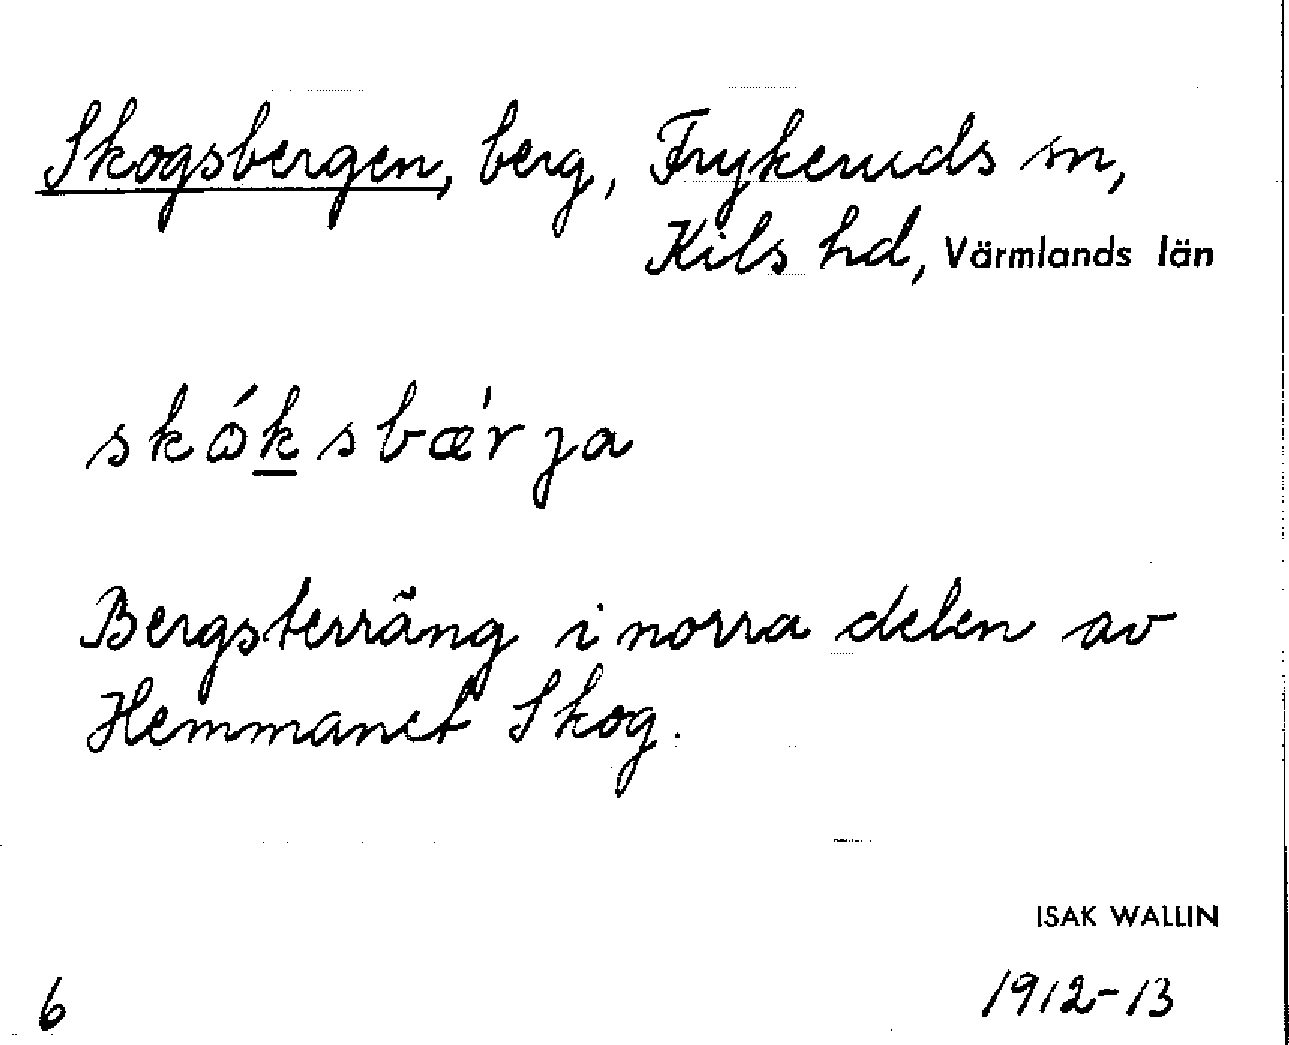 Skogsbergen, berg, Frykeruds sn,
Kils hd, Värmlands län
skɷ́ksbæ'rja
Bergsterräng i norra delen av
Hemmanet Skog.
ISAK WALLIN
6 1912-13